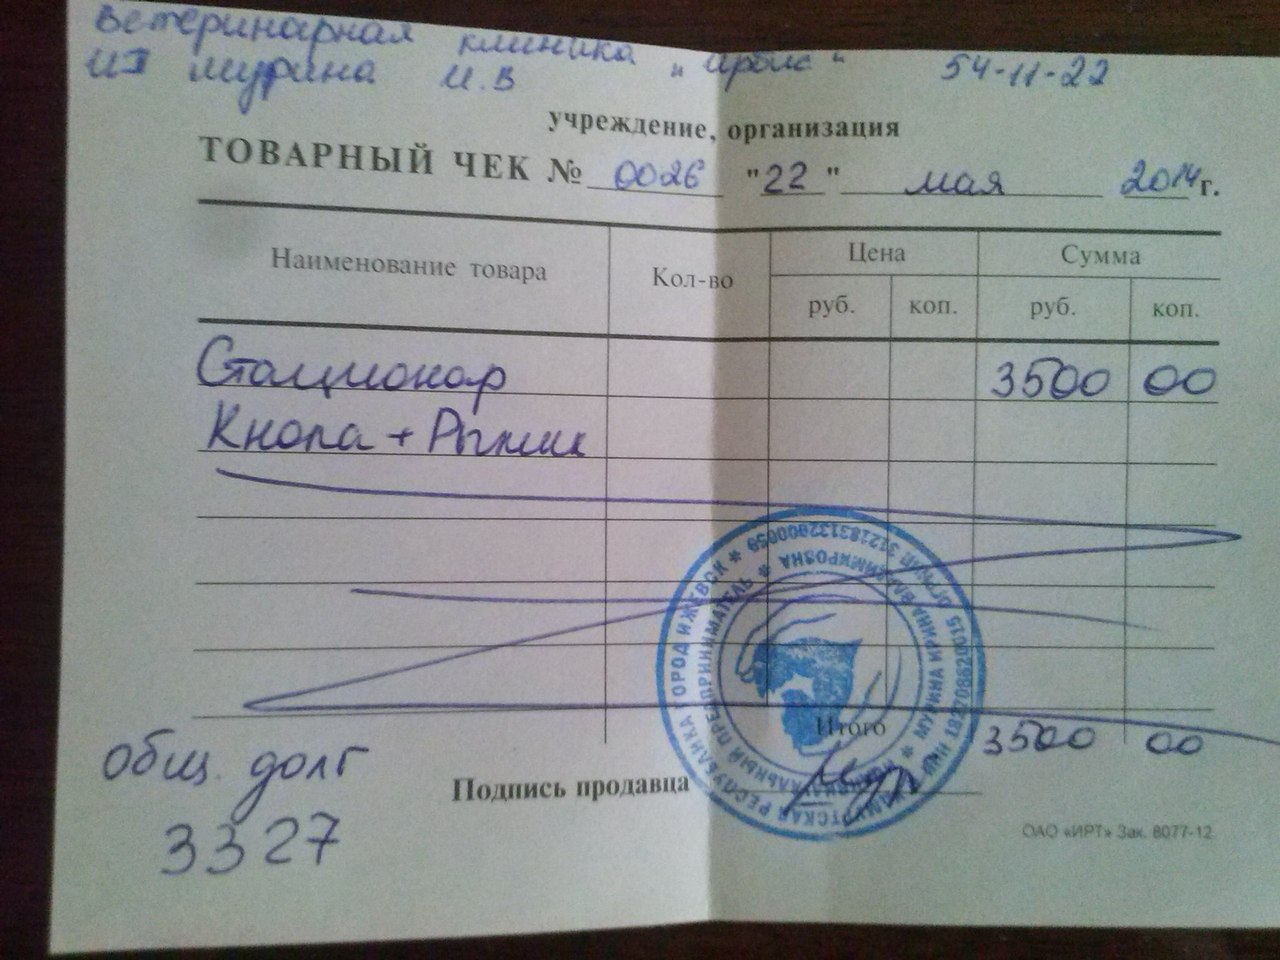 Ветеринарная клиника "Ирбис" 54-11-22
ИП Мурина И.В
учреждение, организация
ТОВАРНЫЙ ЧЕК № 0026 "22" мая 2014 г.
Наименование товара Кол-во Цена Сумма
руб. коп. руб. коп.
Стационар 3500 00
Кнопа + Рыжик
Итого 3500 00
общ. долг
3327
Подпись продавца
УДМУРТСКАЯ РЕСПУБЛИКА ГОРОД ИЖЕВСК *
ИНДИВИДУАЛЬНЫЙ ПРЕДПРИНИМАТЕЛЬ * МУРИНА ИРИНА ВЛАДИМИРОВНА *
ОАО «ИРТ» Зак. 8077-12